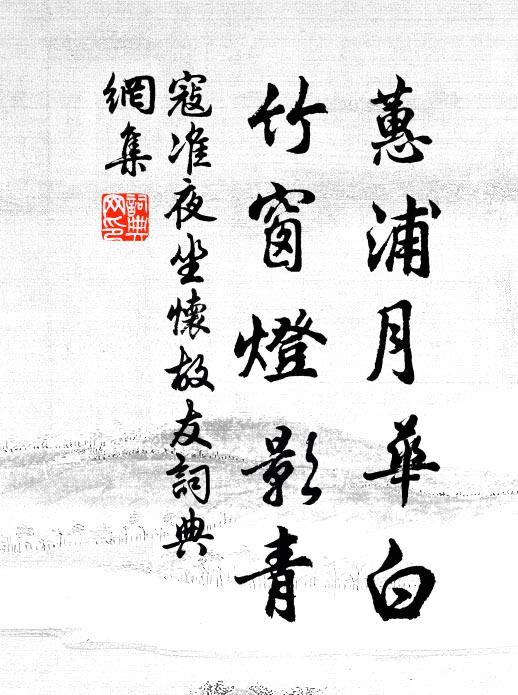 蕙浦月華白
竹窗燈影青
寇准夜坐懷故友詞典
網集
詞典
网印